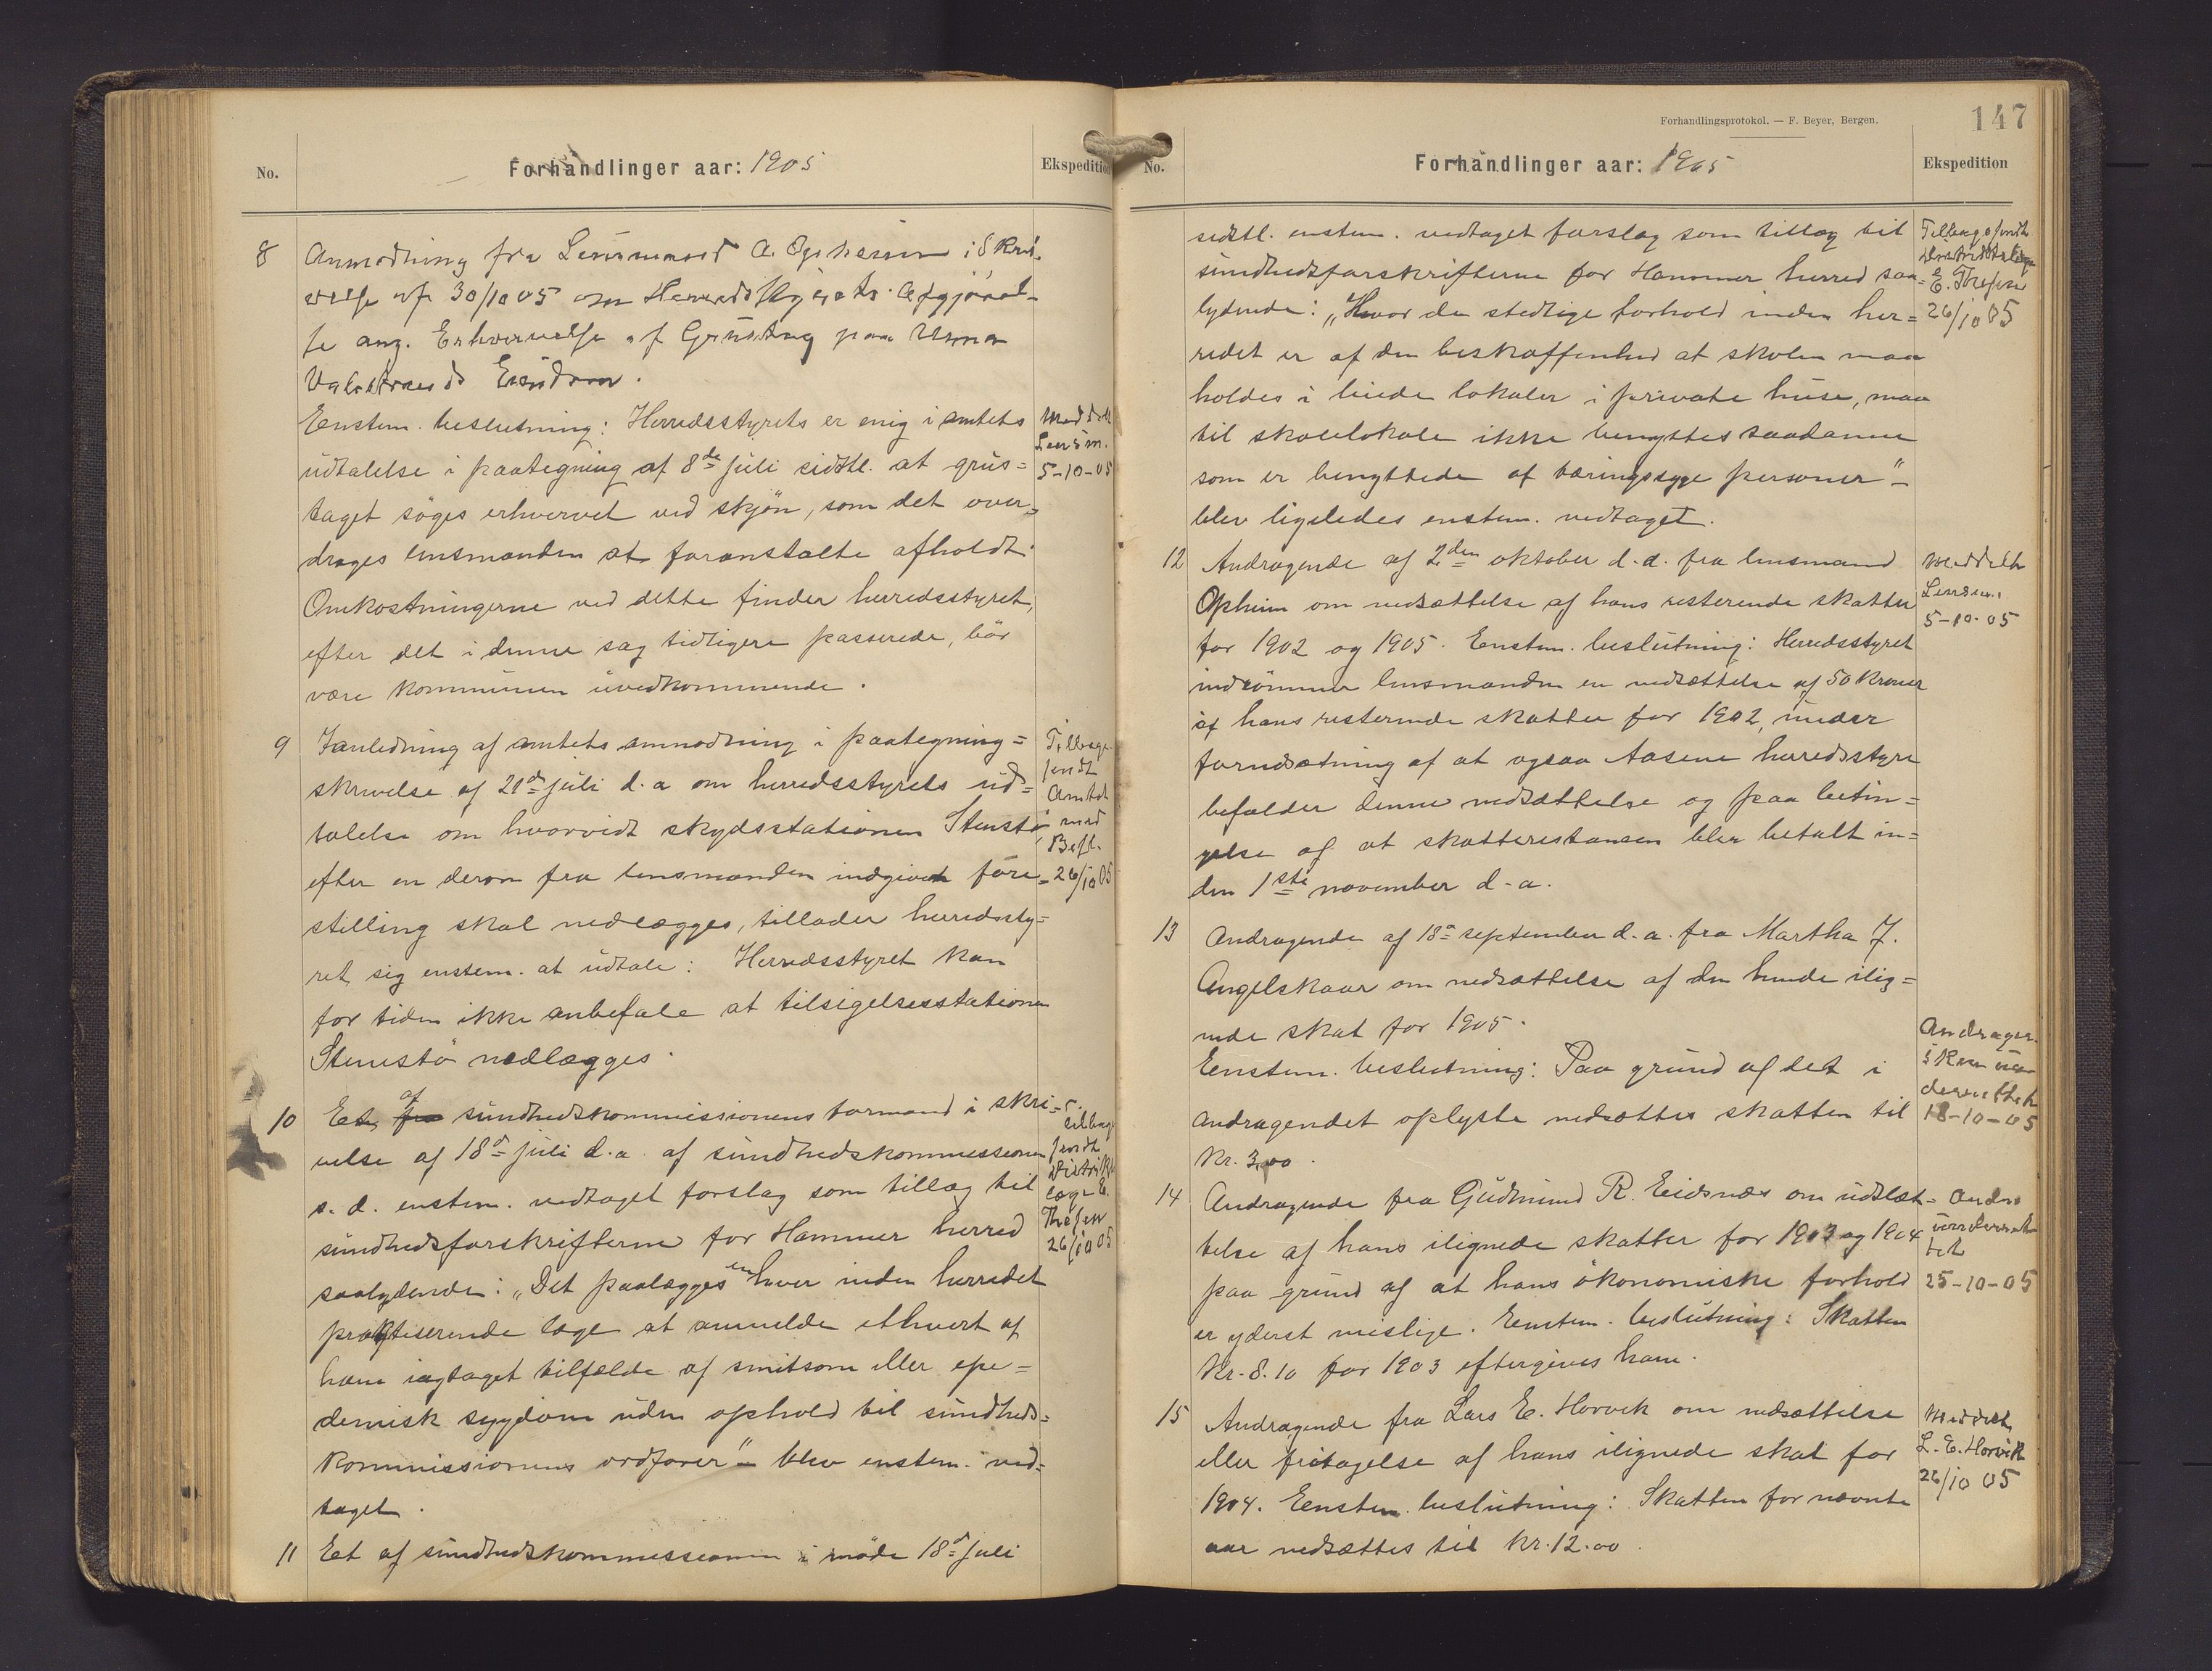 No.
Forhandlinger aar: 1905
Ekspedition
8
Anmodning fra Lensmand A. Opheim i Skri-
velse af 30/10 05 om Herredsstyrets Afgjørel-
se ang. Erhvervelse af Grustag paa
Eiendom.
Enstem. beslutning: Herredsstyrets er enig i amtets
udtalelse i paategning af 8de juli sidstl. at grus=
taget söges erhvervet ved skjön, som det over=
drages lensmanden at foranstalte afholdt.
Omkostningerne ved dette finder herredsstyret,
efter det i denne sag tidligere passerede, bör
være kommunen uvedkommende.
Meddelt
Lensm.
5-10-05
9
Ianledning af amtets anmodning i paategning=
skrivelse af 21de juli d.a om herredsstyrets ud=
talelse om hvorvidt skydsstationen Stenstø
efter en derom fra lensmanden indgivet fore=
stilling skal nedlægges, tillader herredssty=
ret sig enstem. at udtale: Herredsstyret kan
for tiden ikke anbefale at tilsigelsesstationen
Stenstö nedlægges.
Tilbage
sendt
Amtet
med
Besl.
26/10 05
10
Et fra af sundhedskommissionens formand i skri=
velse af 18de juli d.a. af sundhedskommissionen
s.d. enstem. vedtaget forslag som tillæg til
sundhedsforskrifterne for Hammer herred
saalydende: „Det paalægges enhver inden herredet
praktiserende læge at anmelde ethvert af
ham iagtaget tilfælde af smitsom eller epe=
demisk sygdom uden ophold til sundheds=
kommissionens ordfører" – blev enstem. ved=
taget.
tilbage
sendt
Distrikts
læge E.
Thesen
26/10 05
11
Et af sundhedskommissionen i møde 18de juli
Forhandlingsprotokol. — F. Beyer, Bergen.
147
No.
Forhandlinger aar: 1905
Ekspedition
sidstl. enstem. vedtaget forslag som tillæg til
sundhedsforskrifterne for Hammer herred saa=
lydende: „Hvor de stedlige forhold inden her=
redet er af den beskaffenhed at skolen maa
holdes i leiede lokaler i private huse, maa
til skolelokale ikke benyttes saadanne
som er benyttede af tæringssyge personer" –
blev ligeledes enstem. vedtaget.
Tilbagesendt
distriktslæge
E. Thesen
26/10 05
12
Andragende af 2den oktober d.a. fra lensmand
Opheim om nedsættelse af hans resterende skatter
for 1902 og 1905. Enstem. beslutning: Herredsstyret
indrömmer lensmanden en nedsættelse af 50 kroner
af hans resterende skatter for 1902, under
forudsætning af at ogsaa Aasene herredsstyre
befalder denne nedsættelse og paa betin=
gelse af at skatterestancen blir betalt in=
den 1ste november d.a.
Meddelt
Lensm.
5-10-05
13
Andragende af 18de september d.a. fra Martha J.
Angelskaar om nedsættelse af den hende ilig=
nede skat for 1905.
Enstem. beslutning: Paa grund af det i
andragendet oplyste nedsættes skatten til
Kr. 3,00.
Andrager-
sken un
derrettet
18-10-05
14
Andragende fra Gudmund R. Eidsnæs om udslet=
telse af hans ilignede skatter for 1903 og 1904
paa grund af at hans ökonomiske forhold
er yderst mislige. Enstem. beslutning: Skatten
Kr. 8.10 for 1903 eftergives ham.
Andr.
underret
tet
25-10-05
15
Andragende fra Lars E. Horvik om nedsættelse
eller fritagelse af hans ilignede skat for
1904. Enstem. beslutning: Skatten for nævnte
aar nedsættes til Kr. 12.00.
Meddelt
L. E. Horvik
26/10 05